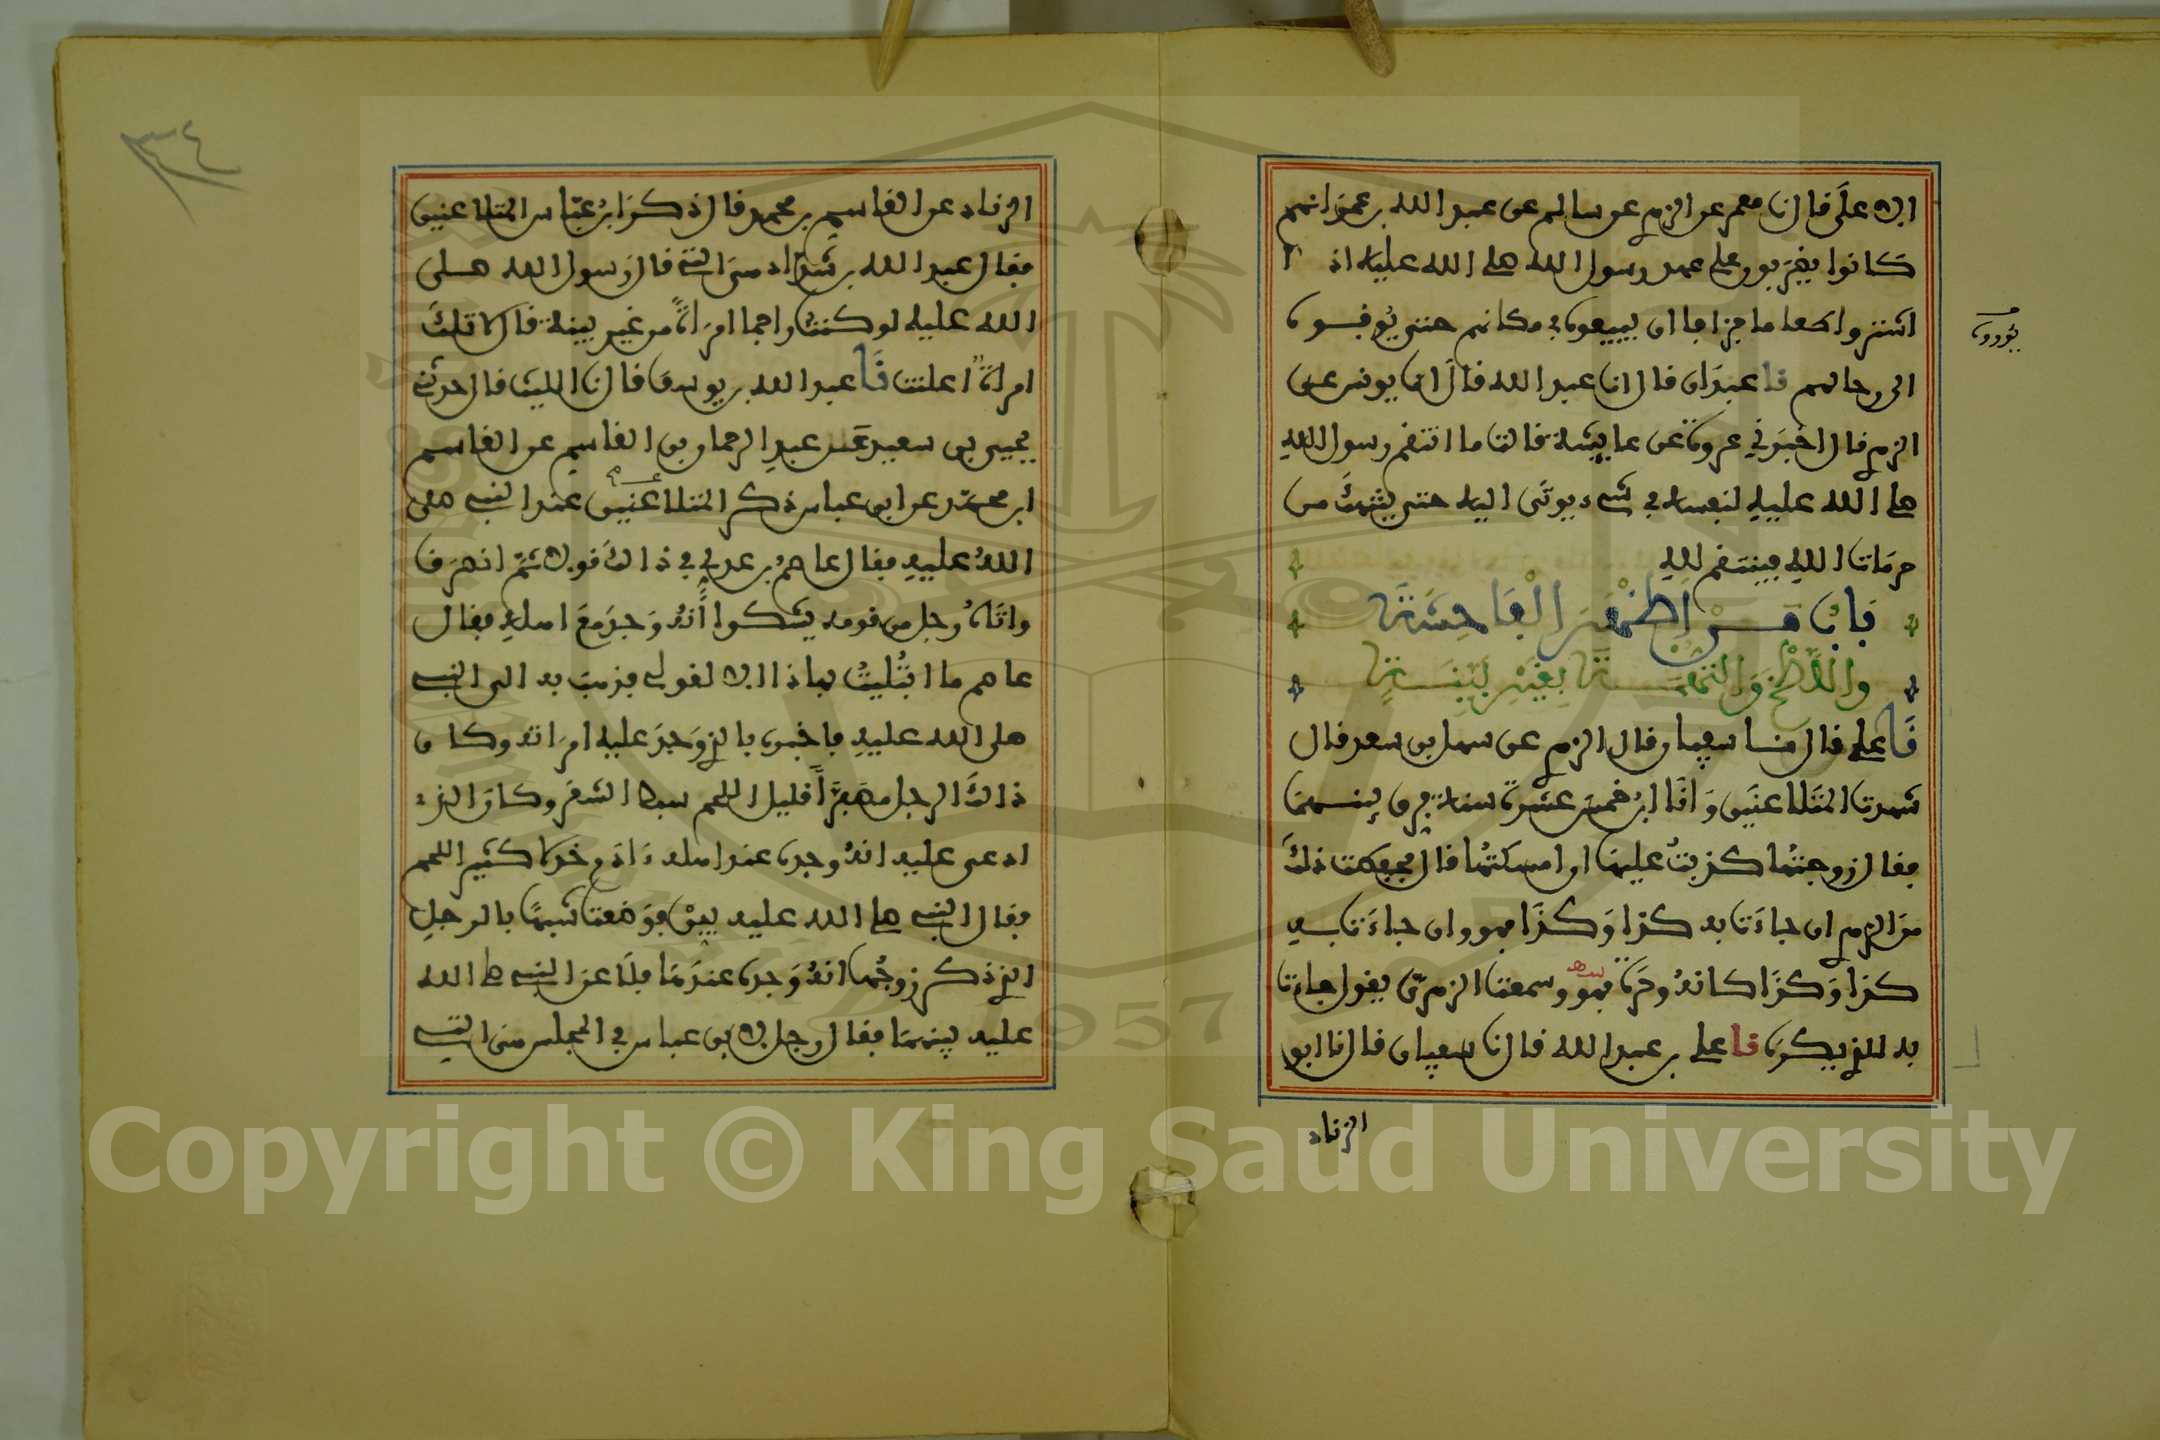 الاعلى قال نا معمر عن الزهري عن سالم عن عبد الله بن عمر انهم
كانوا يضربون على عهد رسول الله صلى الله عليه اذا
اشتروا طعاما جزافا ان يبيعوه في مكانهم حتى يؤوه
الى رحالهم نا عبدان قال انا عبد الله قال انا يونس عن
الزهري قال اخبرني عروة عن عايشة قالت ما انتقم رسول الله
صلى الله عليه لنفسه في شيء يوتى اليه حتى ينتهك من
حرمات الله فينتقم لله
باب من اظهر الفاحشة
واللطخ والتهمة بغير بينة
نا علي قال نا سفيان قال الزهري عن سهل بن سعد قال
شهدت المتلاعنين وانا ابن خمس عشرة سنة فرق بينهما
فقال زوجها كذبت عليها ان امسكتها قال فحفظت ذلك
من الزهري ان جاءت به كذا وكذا فهو وان جاءت به
كذا وكذا كانه وحرة فهو وسمعت الزهري يقول جاءت
به للذي يكره نا علي بن عبد الله قال نا سفيان قال نا ابو
الزناد
الزناد عن القاسم بن محمد قال ذكر ابن عباس المتلاعنين
فقال عبد الله بن شداد هي التي قال رسول الله صلى
الله عليه لو كنت راجما امراة من غير بينة قال لا تلك
امراة اعلنت نا عبد الله بن يوسف قال نا الليث قال حدثني
يحيى بن سعيد عن عبد الرحمان بن القاسم عن القاسم
ابن محمد عن ابن عباس ذكر المتلاعنين عند النبي صلى
الله عليه فقال عاصم بن عدي في ذالك قولا ثم انصرف
واتاه رجل من قومه يشكوا انه وجد مع اهله فقال
عاصم ما ابتليت بهاذا الا لقولي فذهب به الى النبي
صلى الله عليه فاخبره بالذي وجد عليه امراته وكان
ذالك الرجل مصفرا قليل اللحم سبط الشعر وكان الذي
ادعى عليه انه وجده عند اهله ءادم خدلا كثير اللحم
فقال النبي صلى الله عليه بين فوضعت شبها بالرجل
الذي ذكر زوجها انه وجده عندها فلاعن النبي صلى الله
عليه بينهما فقال رجل لابن عباس في المجلس هي التي
٣٤